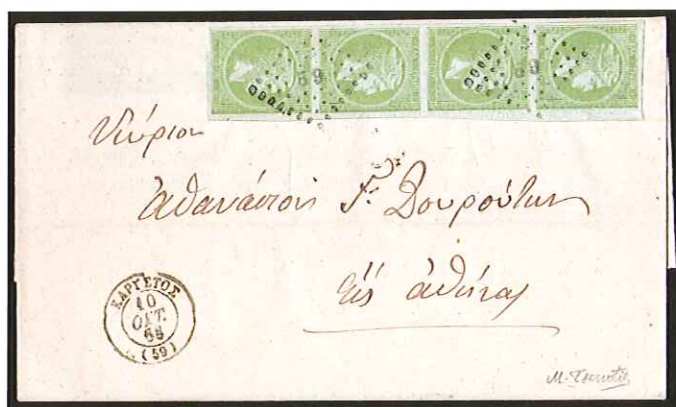 59 59
Κύριον
Ἀθανάσιον Γ. Δουρούτην
εἰς Ἀθήνας
ΚΑΡΥΣΤΟΣ
10
ΟΚΤ.
68
(59)